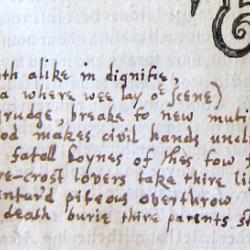 th alike in dignifie,
a where wee lay oe scene)
grudge, breake to new muti
od makes civil hands uncle
fatall Loynes of thes tow
re-crost lovers take thire li
entur'd piteous overthrow
death burie thire parents s